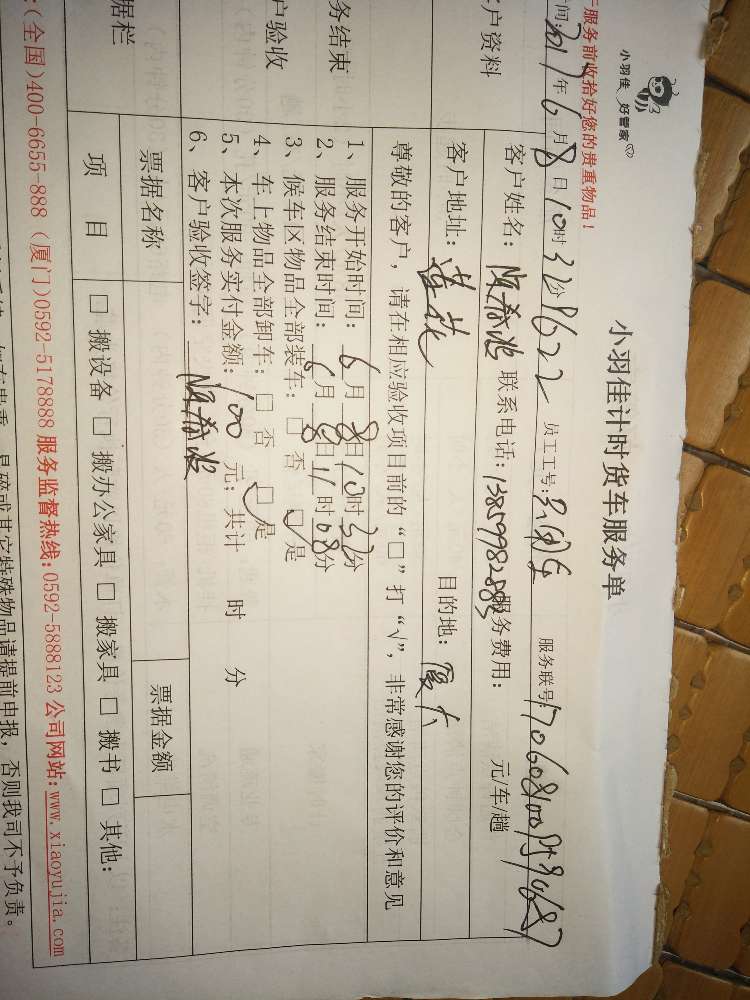 小羽佳 好管家
小羽佳计时货车服务单
服务前收拾好您的贵重物品！
间：2017年6月8日10时32分 8622 员工工号： 服务联号：
户资料 客户姓名： 联系电话：13859982883 服务费用： 元/车/趟
客户地址：莲花 目的地：厦大
尊敬的客户，请在相应验收项目前的“□”打“√”，非常感谢您的评价和意见
务结束
户验收
1、服务开始时间：6月8日10时32分
2、服务结束时间：6月8日11时08分
3、候车区物品全部装车：□ 否 ☑ 是
4、车上物品全部卸车：□ 否 ☑ 是
5、本次服务实付金额：100元；共计 时 分
6、客户验收签字：
据栏 票据名称 票据金额
项 目 □ 搬设备 □ 搬办公家具 □ 搬家具 □ 搬书 □ 其他：
：(全国)400-6655-888 (厦门)0592-5178888 服务监督热线:0592-5888123 公司网站:www.xiaoyujia.com
易碎或其它特殊物品请提前申报，否则我司不予负责。